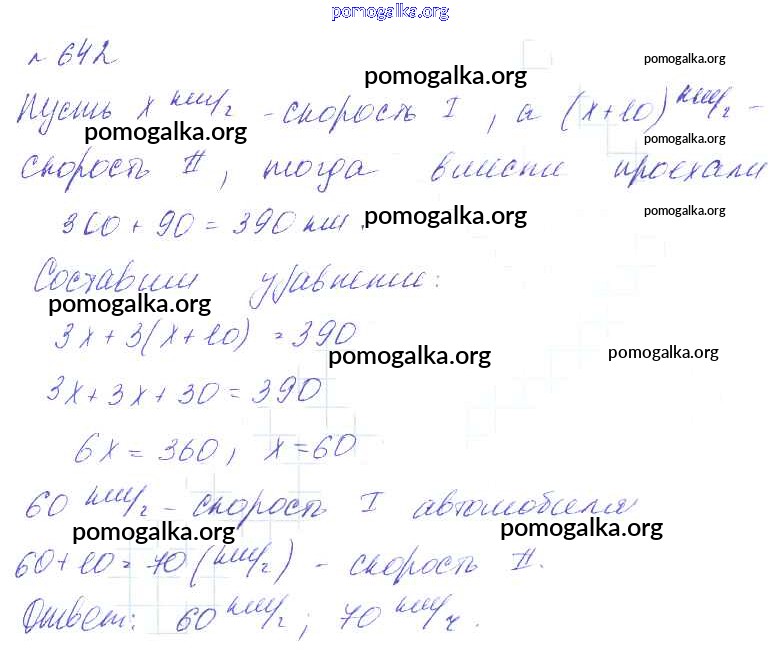 pomogalka.org
№ 642
pomogalka.org
pomogalka.org
Пусть x км/ч - скорость I, а (x+10) км/ч -
pomogalka.org
pomogalka.org
скорость II, тогда вместе проехали
pomogalka.org
pomogalka.org
300 + 90 = 390 км.
Составим уравнение:
pomogalka.org
3x + 3(x+10) = 390
pomogalka.org
pomogalka.org
3x + 3x + 30 = 390
6x = 360, x = 60
60 км/ч - скорость I автомобиля
pomogalka.org
pomogalka.org
60 + 10 = 70 (км/ч) - скорость II.
Ответ: 60 км/ч; 70 км/ч.